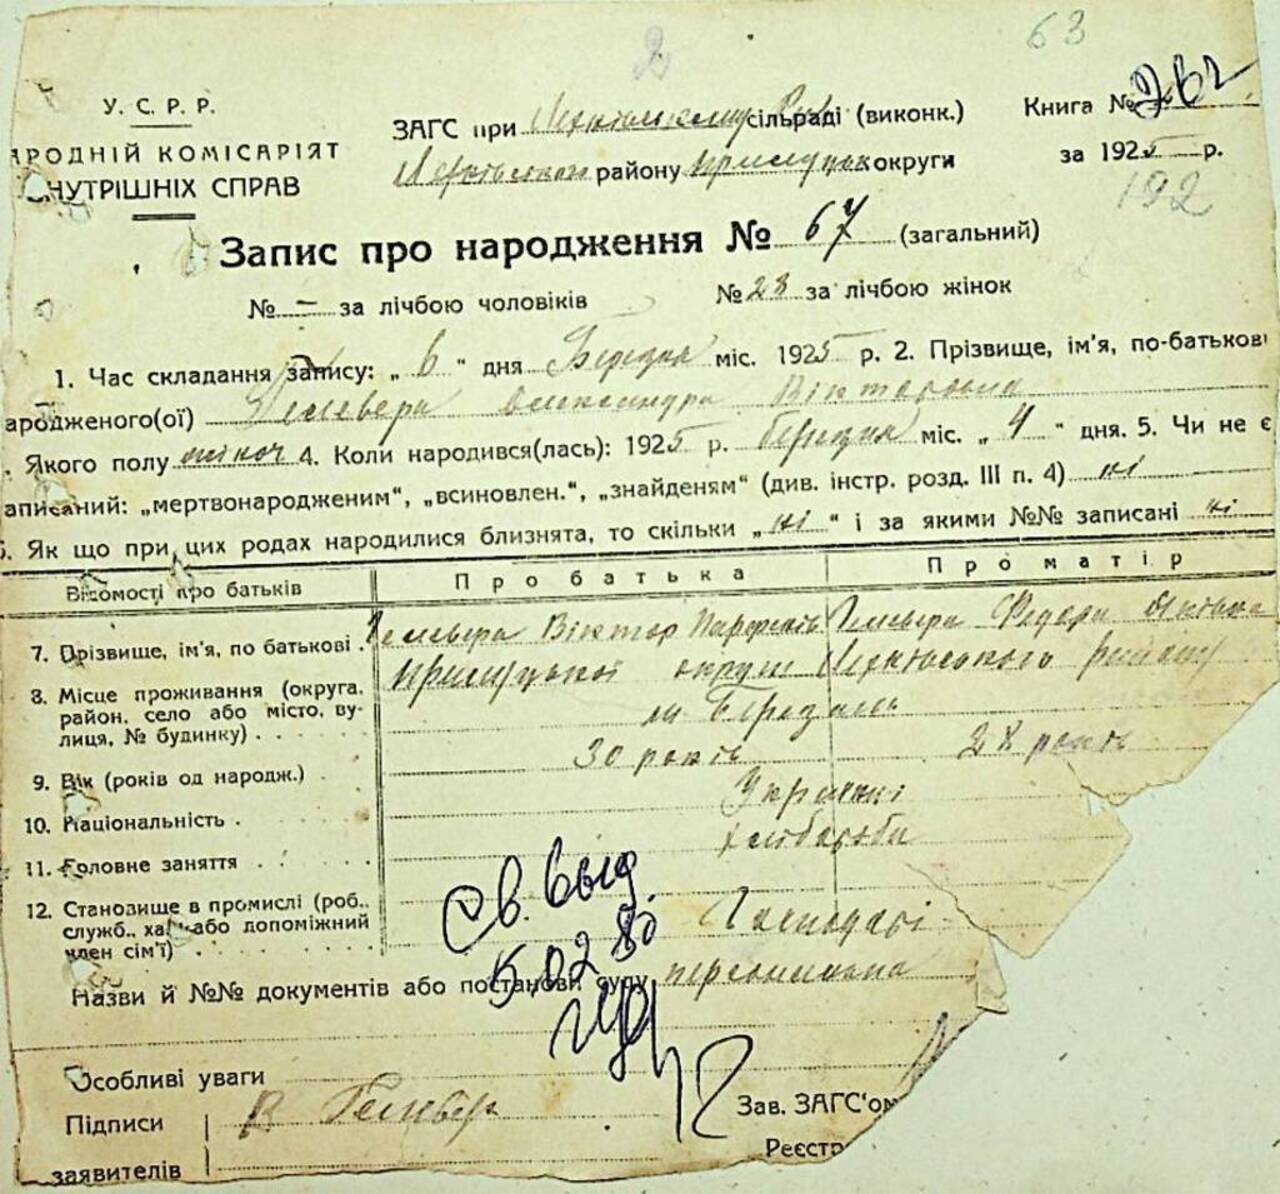 63
2
У. С. Р. Р.
АРОДНІЙ КОМІСАРІЯТ
НУТРІШНІХ СПРАВ
ЗАГС при сільраді (виконк.)
району Прилуцьк округи
Книга № 262
за 1925 р.
192
Запис про народження № 67 (загальний)
№ — за лічбою чоловіків № 28 за лічбою жінок
1. Час складання запису: „ 6 “ дня Березня міс. 1925 р. 2. Прізвище, ім'я, по-батькові
ародженого(ої) Олександра Вікторовна
. Якого полу жіноч 4. Коли народився(лась): 1925 р. березня міс. „ 4 “ дня. 5. Чи не є
аписаний: „мертвонародженим“, „всиновлен.“, „знайденям“ (див. інстр. розд. III п. 4) ні
6. Як що при цих родах народилися близнята, то скільки „ ні “ і за якими №№ записані ні
Відомості про батьків Про батька Про матір
7. Прізвище, ім'я, по батькові . Віктор
8. Місце проживання (округа, район, село або місто, вулиця, № будинку) . . . . Прилуцької округи району
9. Вік (років од народж.) . 30 років 28 років
10. Національність . Українці
11. Головне заняття . . . . хлібороби
12. Становище в промислі (роб., служб., хаз. або допоміжний член сім'ї) . . . . Господарі
Назви й №№ документів або постанови суду персональна
Св. выд.
5.02.80
Особливі уваги
Підписи
заявителів
В
Зав. ЗАГС'ом
Реєстр